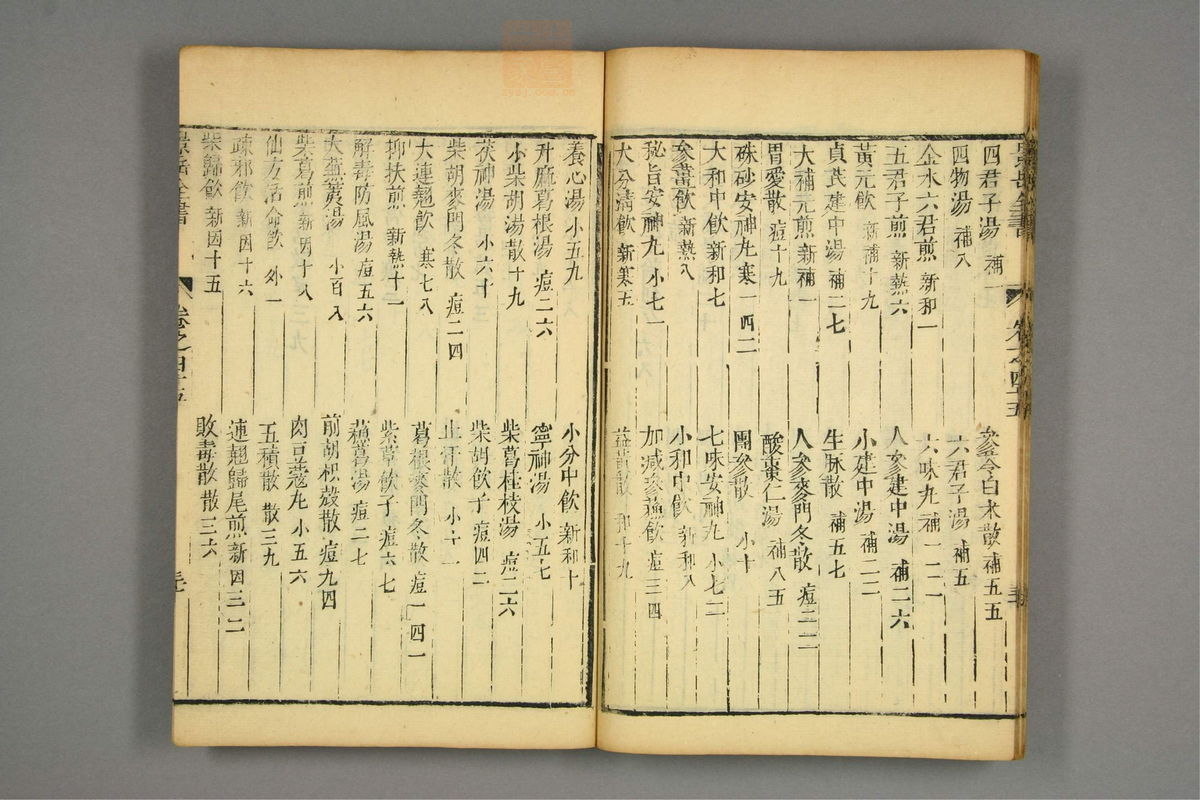 景岳全書 卷之四十五
四君子湯 補一 參苓白朮散 補五五
四物湯 補八 六君子湯 補五
金水六君煎 新和一 六味丸 補一二一
五君子煎 新熱六 人參建中湯 補二六
黃元飲 新補十九 小建中湯 補二二
貞芪建中湯 補二七 生脉散 補五七
胃愛散 痘十九 酸棗仁湯 補八五
大補元煎 新補一 人參麥門冬散 痘二二
硃砂安神丸 寒一四二 團參散 小十
大和中飲 新和七 七味安神丸 小七二
參薑飲 新熱八 小和中飲 新和八
秘旨安神丸 小七一 加減參蘇飲 痘三四
大分清飲 新寒五 益黃散 和十九
養心湯 小五九 小分中飲 新和十
升麻葛根湯 痘二六 寧神湯 小五七
小柴胡湯 散十九 柴葛桂枝湯 痘二六
茯神湯 小六十 柴胡飲子 痘四二
柴胡麥門冬散 痘二四 止汗散 小十一
大連翹飲 寒七八 葛根麥門冬散 痘一四一
抑扶煎 新熱十一 紫草飲子 痘六七
解毒防風湯 痘五六
大蕪荑湯 小百八 前胡枳殼散 痘九四
柴葛煎 新因十八 肉豆蔻丸 小五六
仙方活命飲 外一 五積散 散三九
疎邪飲 新因十六 連翹歸尾煎 新因三二
柴歸飲 新因十五 敗毒散 散三六
景岳全書 卷之四十五